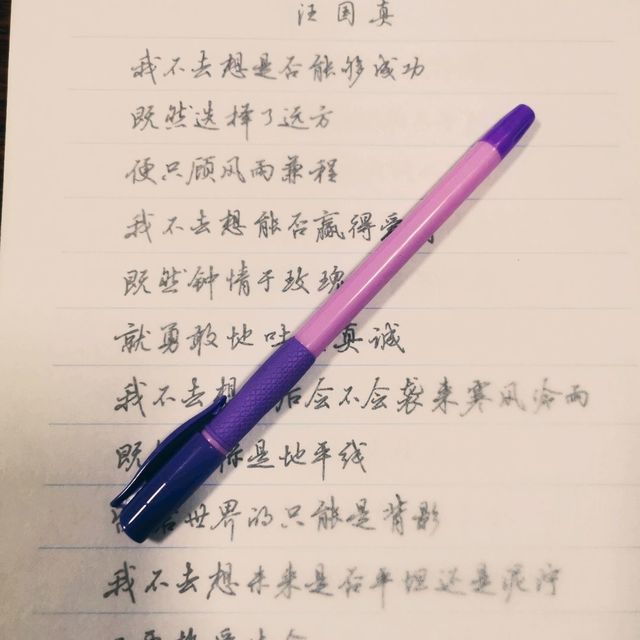 汪国真
我不去想是否能够成功
既然选择了远方
便只顾风雨兼程
我不去想能否赢得爱
既然钟情于玫瑰
就勇敢地吐真诚
我不去想后会不会袭来寒风冷雨
既标是地平线
给世界的只能是背影
我不去想未来是否平坦还是泥泞